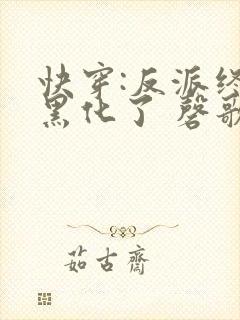 快穿:反派终
黑化了 磬歌
茹古齋